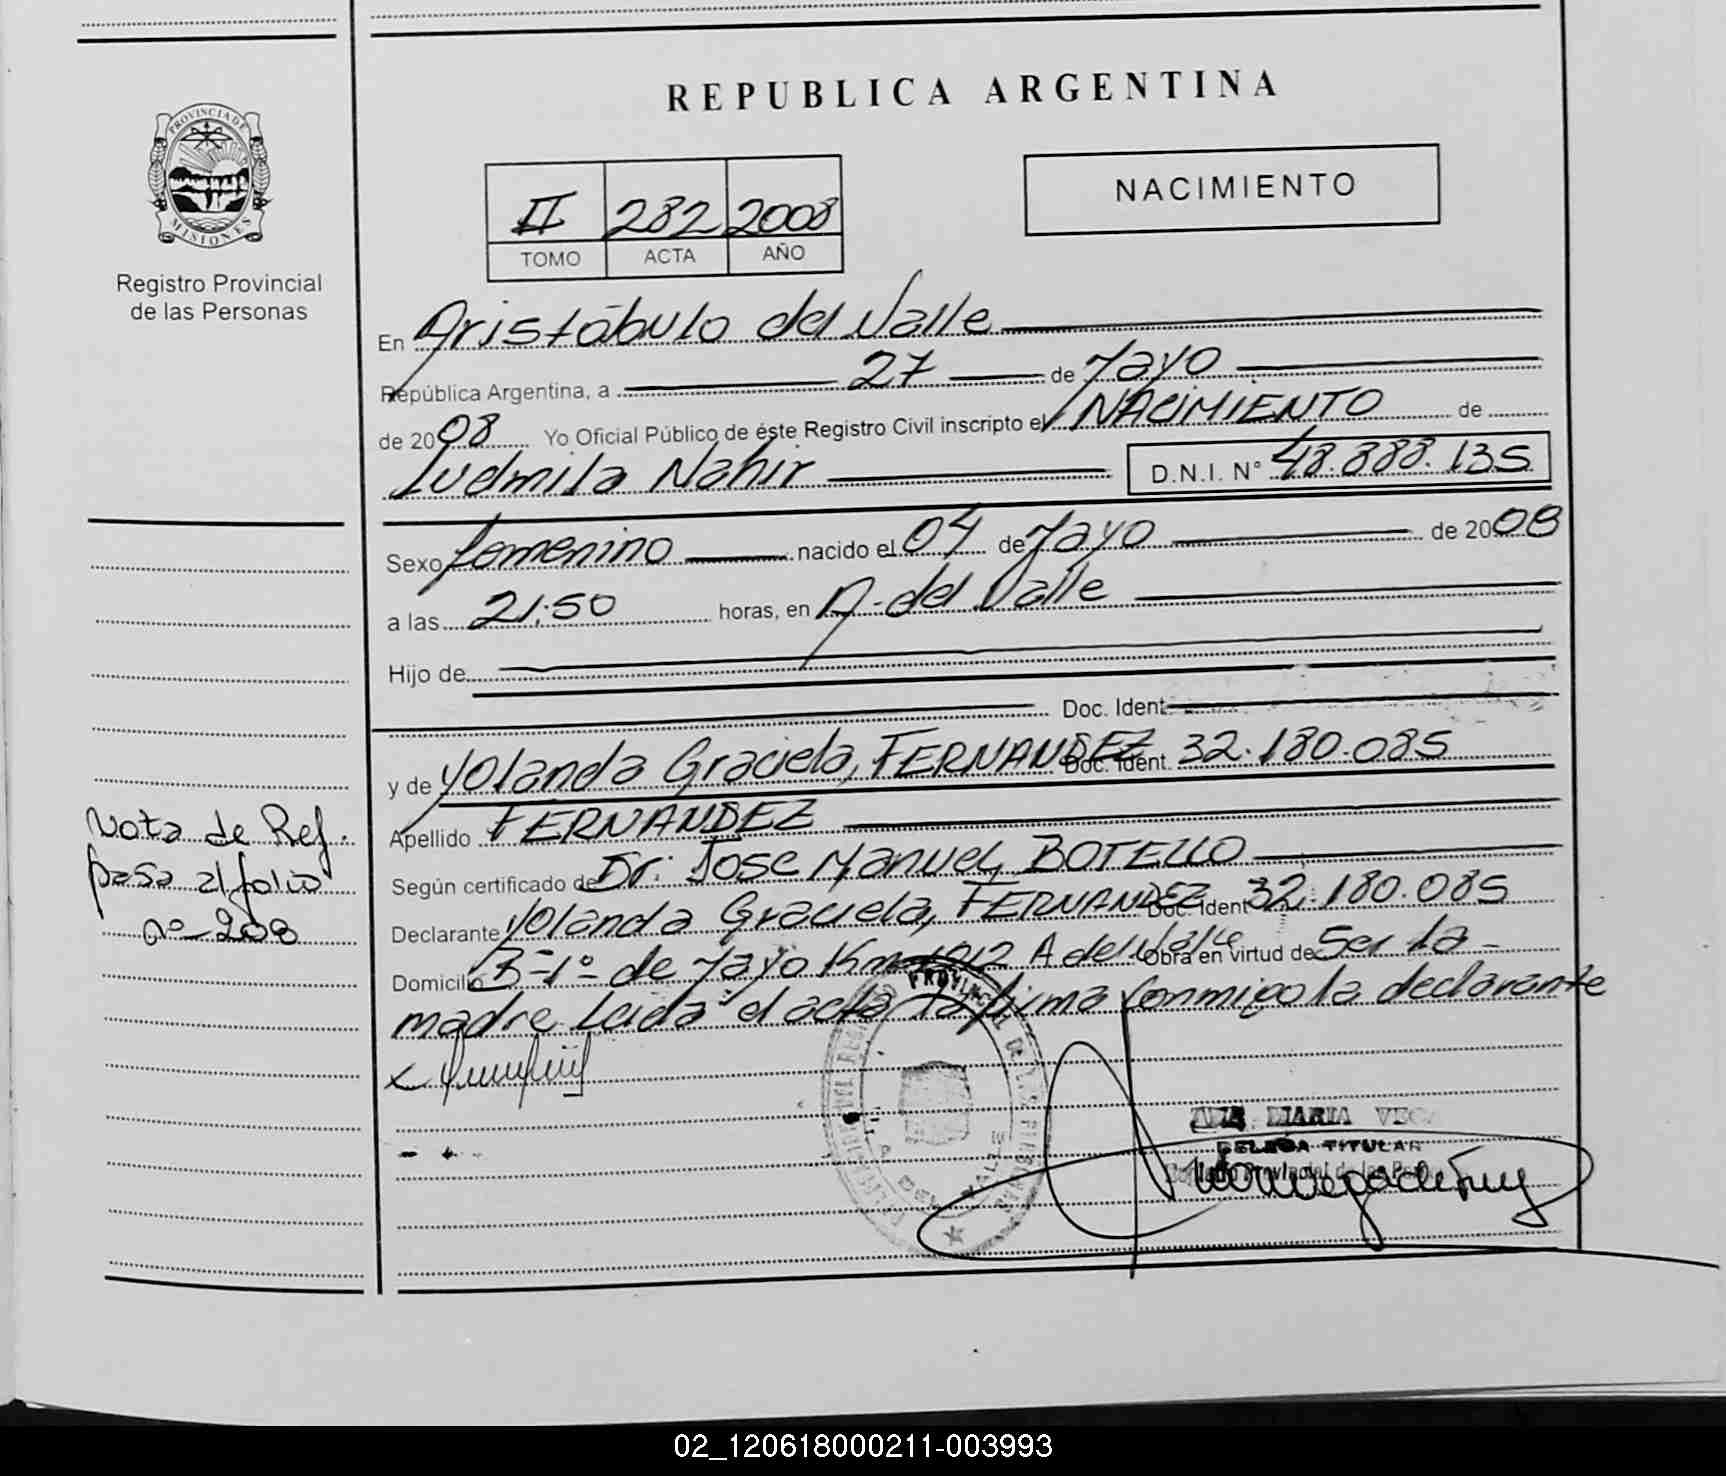 REPUBLICA ARGENTINA
PROVINCIA DE
MISIONES
Registro Provincial
de las Personas
II 282 2008
TOMO ACTA AÑO
NACIMIENTO
En Aristóbulo del Valle
República Argentina, a 27 de Mayo
de 2008 Yo Oficial Público de éste Registro Civil inscripto el NACIMIENTO de
Ludmila Nahir D.N.I. N° 48.888.135
Sexo femenino nacido el 04 de Mayo de 2008
a las 21:50 horas, en A. del Valle
Hijo de
Doc. Ident.
y de Yolanda Graciela, FERNANDEZ Doc. Ident. 32.180.085
Apellido FERNANDEZ
Según certificado de Dr: Jose Manuel, BOTELLO
Declarante Yolanda Graciela, FERNANDEZ Doc. Ident 32.180.085
Domicilio B-1° de Mayo Km 1212 A del Valle Obra en virtud de Ser la
madre Leida el acta la firma conmigo la declarante
Nota de Ref.
pasa al folio
n° 208
ANA MARIA VEGA
DELEGADA TITULAR
Registro Provincial de las Personas
02_120618000211-003993